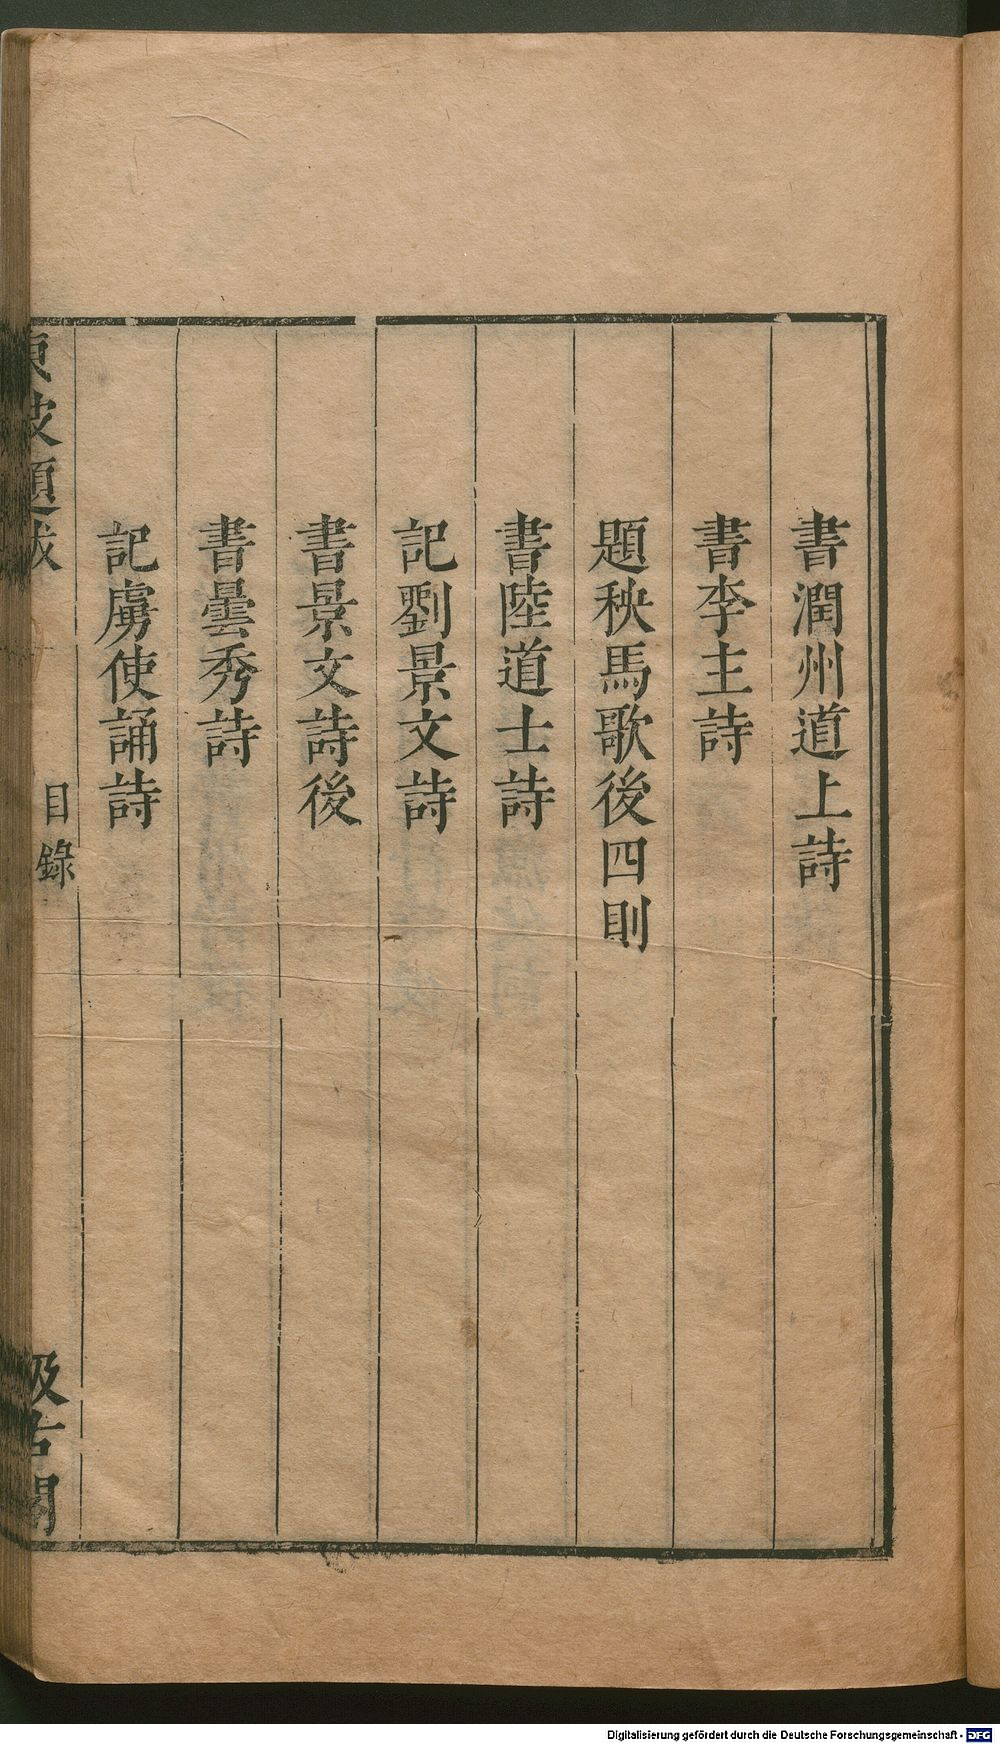 書潤州道上詩
書李主詩
題秧馬歌後四則
書陸道士詩
記劉景文詩
書景文詩後
書曇秀詩
記虜使誦詩
東坡題跋
目錄
汲古閣
Digitalisierung gefördert durch die Deutsche Forschungsgemeinschaft - DFG